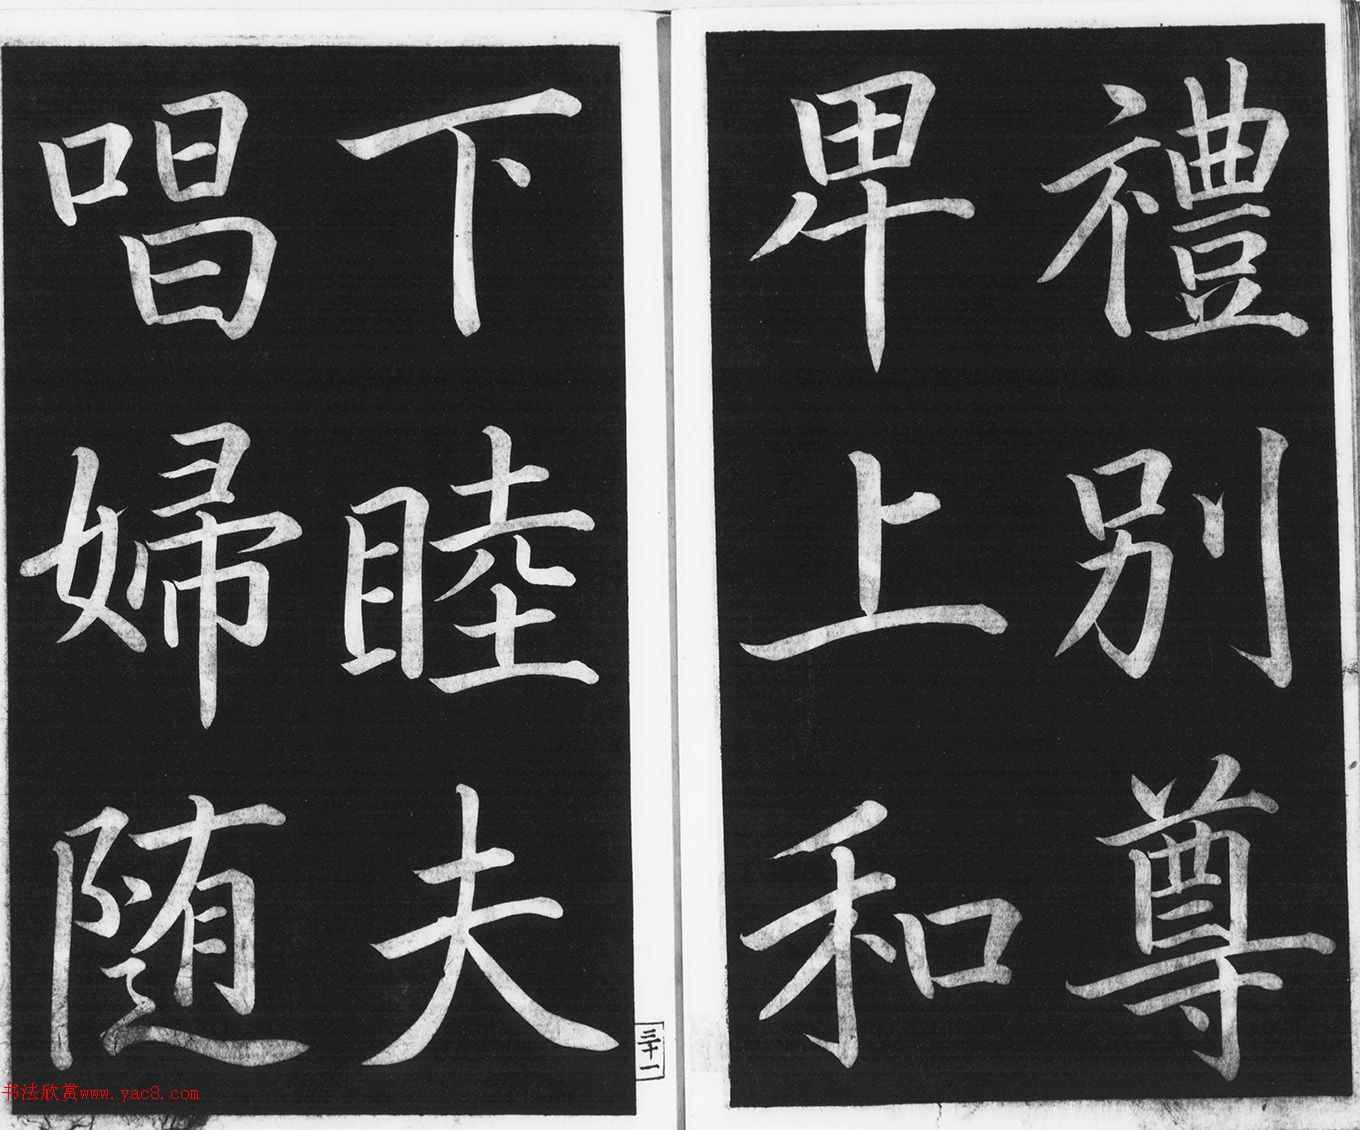 禮別尊
卑上和
下睦夫
唱婦随
三十一
书法欣赏www.yac8.com